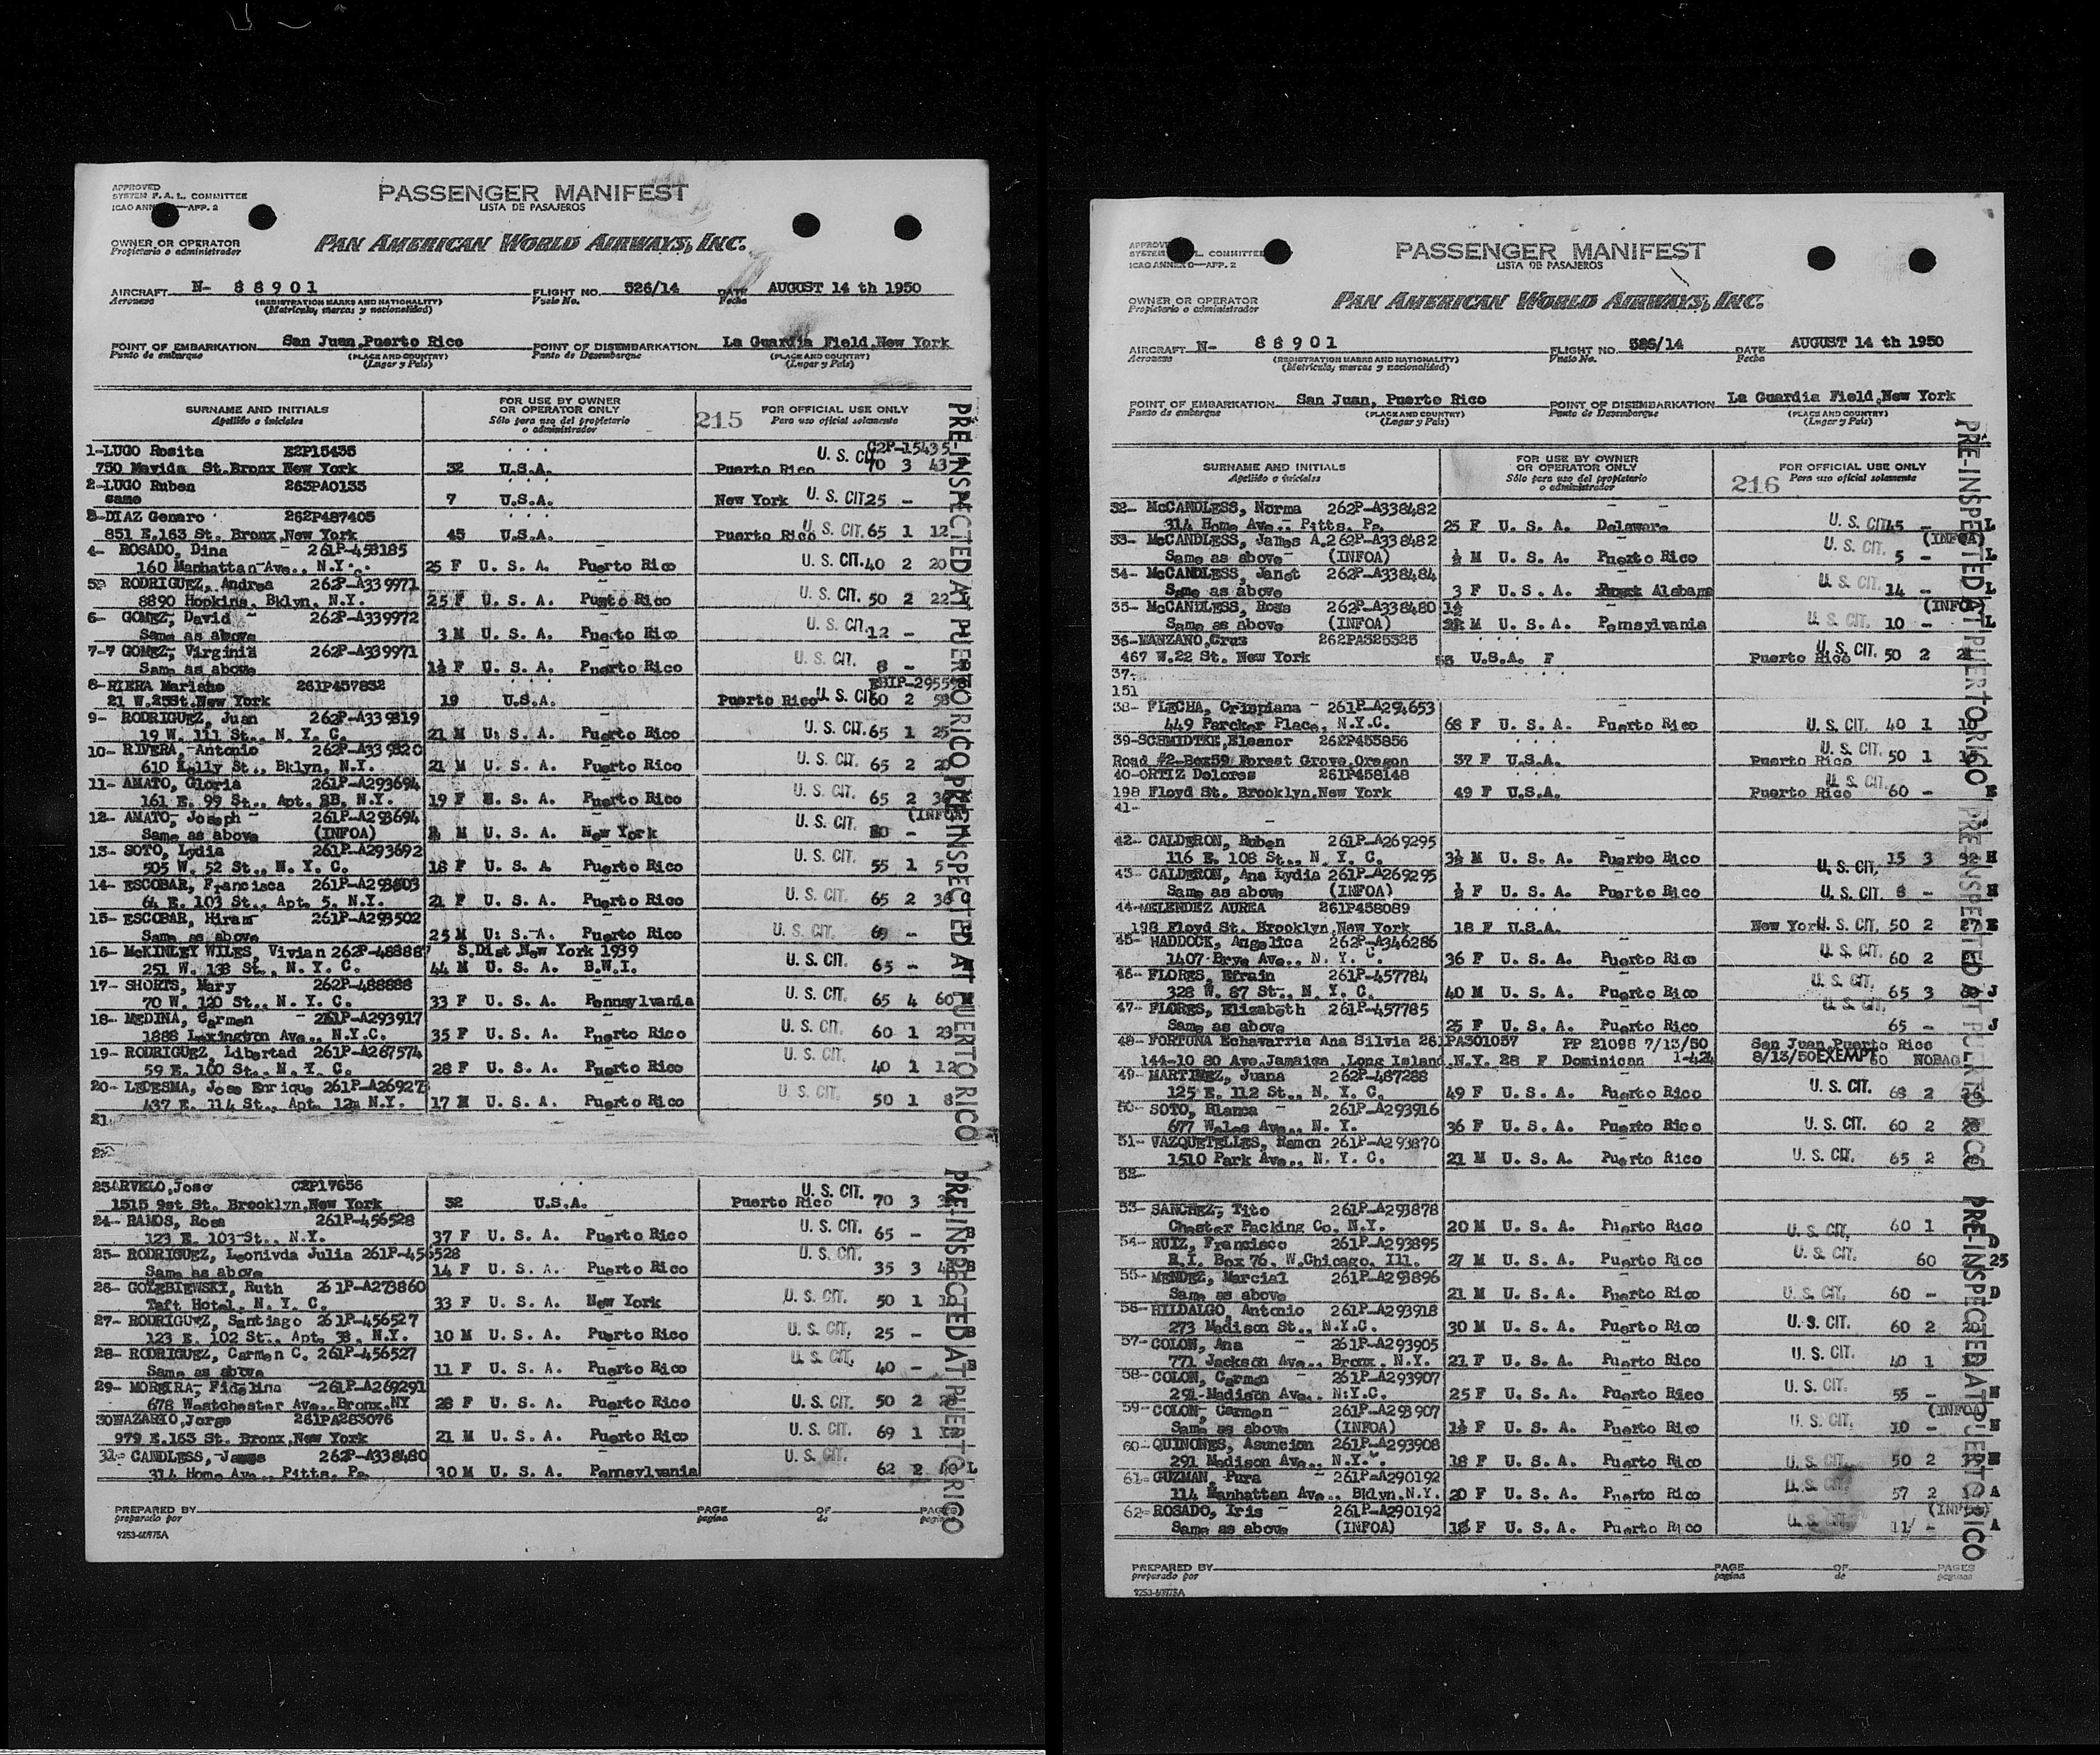 APPROVED
SYSTEM F. A. L. COMMITTEE
ICAO ANN —APP. 2
PASSENGER MANIFEST
LISTA DE PASAJEROS
OWNER OR OPERATOR
Propietario o administrador
PAN AMERICAN WORLD AIRWAYS, INC.
AIRCRAFT N- 88901 FLIGHT NO. 526/14 DATE AUGUST 14 th 1950
Aeronave (REGISTRATION MARKS AND NATIONALITY) Vuelo No. Fecha
(Matrícula, marcas y nacionalidad)
POINT OF EMBARKATION San Juan,Puerto Rico POINT OF DISEMBARKATION La Guardia Field,New York
Punto de embarque (PLACE AND COUNTRY) Punto de Desembarque (PLACE AND COUNTRY)
(Lugar y País) (Lugar y País)
SURNAME AND INITIALS FOR USE BY OWNER OR OPERATOR ONLY 215 FOR OFFICIAL USE ONLY
Apellido e iniciales Sólo para uso del propietario o administrador Para uso oficial solamente
1-LUGO Rosita E2P15435 C2P-15435
750 Mavida St.Bronx New York 32 U.S.A. Puerto Rico U. S. CIT 70 3 43
2-LUGO Ruben 263PA0133
same 7 U.S.A. New York U. S. CIT. 25 -
3-DIAZ Genaro 262P487405
851 E.163 St. Bronx,New York 45 U.S.A. Puerto Rico U. S. CIT. 65 1 12
4- ROSADO, Dina 261P-453185
160 Manhattan Ave., N.Y. 25 F U. S. A. Puerto Rico U. S. CIT. 40 2 20
5- RODRIGUEZ, Andrea 262P-A339971
8890 Hopkins, Bklyn, N.Y. 25 F U. S. A. Puerto Rico U. S. CIT. 50 2 22
6- GOMEZ, David 262P-A339972
Same as above 3 M U. S. A. Puerto Rico U. S. CIT. 12 -
7-7 GOMEZ, Virginia 262P-A339971
Same as above 1½ F U. S. A. Puerto Rico U. S. CIT. 8 -
8-RIERA Mariano 261P457832
21 W.25St.New York 19 U.S.A. Puerto Rico U. S. CIT 60 2 58
9- RODRIGUEZ, Juan 262P-A339819
19 W. 111 St., N. Y. C. 21 M U. S. A. Puerto Rico U. S. CIT. 65 1 25
10- RIVERA, Antonio 262P-A339820
610 Kelly St., Bklyn, N.Y. 21 M U. S. A. Puerto Rico U. S. CIT. 65 2
11- AMATO, Gloria 261P-A293694
161 E. 99 St., Apt. 2B, N.Y. 19 F U. S. A. Puerto Rico U. S. CIT. 65 2
12- AMATO, Joseph 261P-A293694 (INFOA)
Same as above (INFOA) M U. S. A. New York U. S. CIT. -
13- SOTO, Lydia 261P-A293692
505 W. 52 St., N. Y. C. 18 F U. S. A Puerto Rico U. S. CIT. 55 1 5
14- ESCOBAR, Francisca 261P-A293503
64 E. 103 St., Apt. 5, N.Y. 21 F U. S. A. Puerto Rico U. S. CIT. 65 2
15- ESCOBAR, Hiram 261P-A293502
Same as above 25 M U. S. A. Puerto Rico U. S. CIT. -
16- McKINLEY WILES, Vivian 262P-48888 S.Dist.New York 1939
251 W. 138 St., N. Y. C. 44 M U. S. A. B.W.I. U. S. CIT. 65 -
17- SHORTS, Mary 262P-488888
70 W. 120 St., N. Y. C. 33 F U. S. A. Pennsylvania U. S. CIT. 65 4 60
18- MEDINA, Carmen 261P-A293917
1888 Lexington Ave., N.Y.C. 35 F U. S. A. Puerto Rico U. S. CIT. 60 1 23
19- RODRIGUEZ, Libertad 261P-A267574
59 E. 100 St., N. Y. C. 28 F U. S. A. Puerto Rico U. S. CIT. 40 1 12
20- LEDESMA, Jose Enrique 261P-A26927
437 E. 114 St., Apt. 12a N.Y. 17 M U. S. A. Puerto Rico U. S. CIT. 50 1 8
21
23ARVELO,Jose C2P17656
1515 9st St. Brooklyn,New York 32 U.S.A. Puerto Rico U. S. CIT. 70 3
24- RAMOS, Rosa 261P-456528
123 E. 103 St., N.Y. 37 F U. S. A. Puerto Rico U. S. CIT. 65 - B
25- RODRIGUEZ, Leonivda Julia 261P-456528
Same as above 14 F U. S. A. Puerto Rico U. S. CIT. 35 3 B
26- GOLEBIEWSKI, Ruth 261P-A273860
Taft Hotel, N. Y. C. 33 F U. S. A. New York U. S. CIT. 50 1
27- RODRIGUEZ, Santiago 261P-456527
123 E. 102 St., Apt. 38, N.Y. 10 M U. S. A. Puerto Rico U. S. CIT. 25 - B
28- RODRIGUEZ, Carmen C. 261P-456527
Same as above 11 F U. S. A. Puerto Rico U. S. CIT. 40 - B
29- MOREIRA, Fidelina 261P-A269291
678 Westchester Ave., Bronx,NY 28 F U. S. A. Puerto Rico U. S. CIT. 50 2
30NAZARIO,Jorge 261PA283076
979 E.163 St. Bronx,New York 21 M U. S. A. Puerto Rico U. S. CIT. 69 1
31- CANDLESS, James 262P-A338480
314 Home Ave., Pitts, Pa. 30 M U. S. A. Pennsylvania U. S. CIT. 62 2 L
PRE-INSPECTED AT PUERTO RICO PRE-INSPECTED AT PUERTO RICO PRE-INSPECTED AT PUERTO RICO
PREPARED BY PAGE OF PAGES
preparado por pagina de
9253-60975A
SYSTEM L. COMMITTEE
ICAO ANNEX 9—APP. 2
PASSENGER MANIFEST
LISTA DE PASAJEROS
OWNER OR OPERATOR
Propietario o administrador
PAN AMERICAN WORLD AIRWAYS, INC.
AIRCRAFT N- 88901 FLIGHT NO. 526/14 DATE AUGUST 14 th 1950
Aeronave (REGISTRATION MARKS AND NATIONALITY) Vuelo No. Fecha
(Matrícula, marcas y nacionalidad)
POINT OF EMBARKATION San Juan, Puerto Rico POINT OF DISEMBARKATION La Guardia Field,New York
Punto de embarque (PLACE AND COUNTRY) Punto de Desembarque (PLACE AND COUNTRY)
(Lugar y País) (Lugar y País)
SURNAME AND INITIALS FOR USE BY OWNER OR OPERATOR ONLY 216 FOR OFFICIAL USE ONLY
Apellido e iniciales Sólo para uso del propietario o administrador Para uso oficial solamente
32- McCANDLESS, Norma 262P-A338482
314 Home Ave., Pitts. Pa. 25 F U. S. A. Delaware U. S. CIT. - L
33- McCANDLESS, James A.262P-A338482 (INFOA)
Same as above (INFOA) ½ M U. S. A. Puerto Rico U. S. CIT. 5 - L
34- McCANDLESS, Janet 262P-A338484
Same as above 3 F U. S. A. Alabama U. S. CIT. 14 - L
35- McCANDLESS, Ross 262P-A338480 1½ (INFOA)
Same as above (INFOA) M U. S. A. Pennsylvania U. S. CIT. 10 - L
36-MANZANO,Cruz 262PA325325
467 W.22 St. New York 53 U.S.A. F Puerto Rico U. S. CIT. 50 2
37-
151
38- FLECHA, Crispiana - 261P-A294653
449 Parcker Place, N.Y.C. 68 F U. S. A. Puerto Rico U. S. CIT. 40 1
39-SCHMIDTKE,Eleanor 262P455856
Road #2-Box59 Forest Grove,Oregon 37 F U.S.A. Puerto Rico U. S. CIT. 50 1
40-ORTIZ Dolores 261P458148
198 Floyd St. Brooklyn,New York 49 F U.S.A. Puerto Rico U. S. CIT. 60 - E
41-
42- CALDERON, Ruben 261P-A269295
116 E. 108 St., N. Y. C. 3½ M U. S. A. Puerto Rico U. S. CIT. 15 3 32 H
43- CALDERON, Ana Lydia 261P-A269295
Same as above (INFOA) ½ F U. S. A. Puerto Rico U. S. CIT. 8 - H
44-MELENDEZ AUREA 261P458089
198 Floyd St. Brooklyn,New York 18 F U.S.A. New York U. S. CIT. 50 2 27 E
45- HADDOCK, Angelica 262P-A346286
1407 Brye Ave., N. Y. C. 36 F U. S. A. Puerto Rico U. S. CIT. 60 2
46- FLORES, Efrain 261P-457784
328 W. 87 St., N. Y. C. 40 M U. S. A. Puerto Rico U. S. CIT. 65 3 J
47- FLORES, Elizabeth 261P-457785
Same as above 25 F U. S. A. Puerto Rico U. S. CIT. 65 - J
48- FORTUNA Echavarria Ana Silvia 261PA301037 PP 21098 7/13/50 San Juan,Puerto Rico
144-10 80 Ave.Jamaica ,Long Island,N.Y. 28 F Dominican 1-424 8/13/50EXEMPT60 NOBAG
49- MARTINEZ, Juana 262P-487288
125 E. 112 St., N. Y. C. 49 F U. S. A. Puerto Rico U. S. CIT. 68 2
50- SOTO, Blanca 261P-A293916
677 Wales Ave., N. Y. 36 F U. S. A. Puerto Rico U. S. CIT. 60 2
51- VAZQUETELLES, Ramon 261P-A293870
1510 Park Ave., N. Y. C. 21 M U. S. A. Puerto Rico U. S. CIT. 65 2
52-
53- SANCHEZ, Tito 261P-A293878
Chester Packing Co. N.Y. 20 M U. S. A. Puerto Rico U. S. CIT. 60 1
54- RUIZ, Francisco 261P-A293895 D
R.I. Box 76, W.Chicago, Ill. 27 M U. S. A. Puerto Rico U. S. CIT. 60 2 25
55- MENDEZ, Marcial 261P-A293896
Same as above 21 M U. S. A. Puerto Rico U. S. CIT. 60 - D
56- HILDALGO, Antonio 261P-A293918
273 Madison St., N.Y.C. 30 M U. S. A. Puerto Rico U. S. CIT. 60 2
57- COLON, Ana 261P-A293905
771 Jackson Ave., Bronx, N.Y. 21 F U. S. A. Puerto Rico U. S. CIT. 40 1
58- COLON, Carmen 261P-A293907
291 Madison Ave., N.Y.C. 25 F U. S. A. Puerto Rico U. S. CIT. 55 - N
59- COLON, Carmen 261P-A293907 (INFOA)
Same as above (INFOA) 1½ F U. S. A. Puerto Rico U. S. CIT. 10 - N
60- QUINONES, Asuncion 261P-A293908
291 Madison Ave., N.Y. 18 F U. S. A. Puerto Rico U. S. CIT. 50 2 N
61- GUZMAN, Pura 261P-A290192
114 Manhattan Ave., Bklyn,N.Y. 20 F U. S. A. Puerto Rico U. S. CIT. 57 2 A
62- ROSADO, Iris 261P-A290192 (INFOA)
Same as above (INFOA) F U. S. A. Puerto Rico U. S. CIT. 11 - A
PRE-INSPECTED AT PUERTO RICO PRE-INSPECTED AT PUERTO RICO PRE-INSPECTED AT PUERTO RICO
PREPARED BY PAGE OF PAGES
preparado por pagina de paginas
9253-60975A